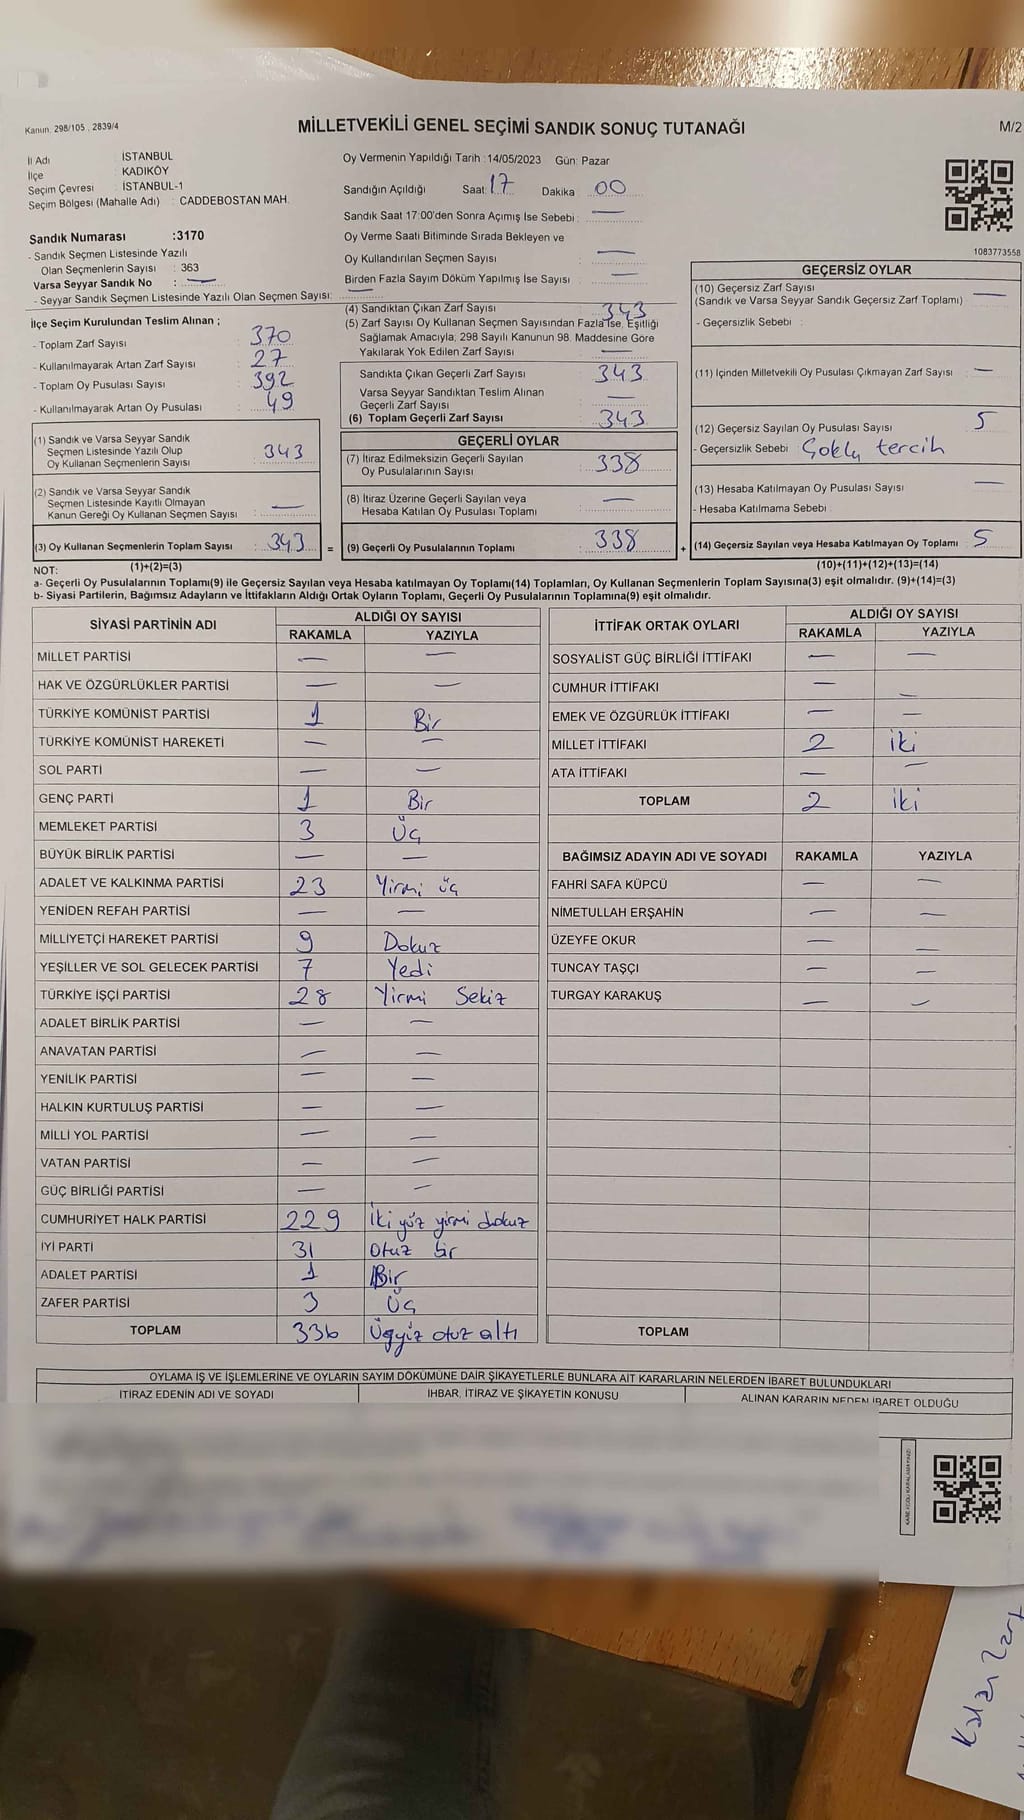 Kanun: 298/105 , 2839/4
MİLLETVEKİLİ GENEL SEÇİMİ SANDIK SONUÇ TUTANAĞI
M/2
İl Adı : İSTANBUL
İlçe : KADIKÖY
Seçim Çevresi : İSTANBUL-1
Seçim Bölgesi (Mahalle Adı) : CADDEBOSTAN MAH.
Sandık Numarası :3170
- Sandık Seçmen Listesinde Yazılı
Olan Seçmenlerin Sayısı : 363
Varsa Seyyar Sandık No : —
- Seyyar Sandık Seçmen Listesinde Yazılı Olan Seçmen Sayısı: —
İlçe Seçim Kurulundan Teslim Alınan ;
- Toplam Zarf Sayısı : 370
- Kullanılmayarak Artan Zarf Sayısı : 27
- Toplam Oy Pusulası Sayısı : 392
- Kullanılmayarak Artan Oy Pusulası : 49
(1) Sandık ve Varsa Seyyar Sandık
Seçmen Listesinde Yazılı Olup
Oy Kullanan Seçmenlerin Sayısı : 343
(2) Sandık ve Varsa Seyyar Sandık
Seçmen Listesinde Kayıtlı Olmayan
Kanun Gereği Oy Kullanan Seçmen Sayısı : —
(3) Oy Kullanan Seçmenlerin Toplam Sayısı : 343
Oy Vermenin Yapıldığı Tarih :14/05/2023 Gün: Pazar
Sandığın Açıldığı Saat: 17 Dakika 00
Sandık Saat 17:00'den Sonra Açımış İse Sebebi : —
Oy Verme Saati Bitiminde Sırada Bekleyen ve
Oy Kullandırılan Seçmen Sayısı : —
Birden Fazla Sayım Döküm Yapılmış İse Sayısı : —
(4) Sandıktan Çıkan Zarf Sayısı : 343
(5) Zarf Sayısı Oy Kullanan Seçmen Sayısından Fazla İse, Eşitliği
Sağlamak Amacıyla, 298 Sayılı Kanunun 98. Maddesine Göre
Yakılarak Yok Edilen Zarf Sayısı : —
Sandıkta Çıkan Geçerli Zarf Sayısı : 343
Varsa Seyyar Sandıktan Teslim Alınan
Geçerli Zarf Sayısı : —
(6) Toplam Geçerli Zarf Sayısı : 343
GEÇERLİ OYLAR
(7) İtiraz Edilmeksizin Geçerli Sayılan
Oy Pusulalarının Sayısı : 338
(8) İtiraz Üzerine Geçerli Sayılan veya
Hesaba Katılan Oy Pusulası Toplamı : —
= (9) Geçerli Oy Pusulalarının Toplamı : 338
1083773558
GEÇERSİZ OYLAR
(10) Geçersiz Zarf Sayısı : —
(Sandık ve Varsa Seyyar Sandık Geçersiz Zarf Toplamı)
- Geçersizlik Sebebi :
(11) İçinden Milletvekili Oy Pusulası Çıkmayan Zarf Sayısı : —
(12) Geçersiz Sayılan Oy Pusulası Sayısı : 5
- Geçersizlik Sebebi : Çoklu tercih
(13) Hesaba Katılmayan Oy Pusulası Sayısı : —
- Hesaba Katılmama Sebebi :
+ (14) Geçersiz Sayılan veya Hesaba Katılmayan Oy Toplamı : 5
NOT: (1)+(2)=(3) (10)+(11)+(12)+(13)=(14)
a- Geçerli Oy Pusulalarının Toplamı(9) ile Geçersiz Sayılan veya Hesaba katılmayan Oy Toplamı(14) Toplamları, Oy Kullanan Seçmenlerin Toplam Sayısına(3) eşit olmalıdır. (9)+(14)=(3)
b- Siyasi Partilerin, Bağımsız Adayların ve İttifakların Aldığı Ortak Oyların Toplamı, Geçerli Oy Pusulalarının Toplamına(9) eşit olmalıdır.
SİYASİ PARTİNİN ADI ALDIĞI OY SAYISI
RAKAMLA YAZIYLA
MİLLET PARTİSİ — —
HAK VE ÖZGÜRLÜKLER PARTİSİ — —
TÜRKİYE KOMÜNİST PARTİSİ 1 Bir
TÜRKİYE KOMÜNİST HAREKETİ — —
SOL PARTİ — —
GENÇ PARTİ 1 Bir
MEMLEKET PARTİSİ 3 Üç
BÜYÜK BİRLİK PARTİSİ — —
ADALET VE KALKINMA PARTİSİ 23 Yirmi üç
YENİDEN REFAH PARTİSİ — —
MİLLİYETÇİ HAREKET PARTİSİ 9 Dokuz
YEŞİLLER VE SOL GELECEK PARTİSİ 7 Yedi
TÜRKİYE İŞÇİ PARTİSİ 28 Yirmi Sekiz
ADALET BİRLİK PARTİSİ — —
ANAVATAN PARTİSİ — —
YENİLİK PARTİSİ — —
HALKIN KURTULUŞ PARTİSİ — —
MİLLİ YOL PARTİSİ — —
VATAN PARTİSİ — —
GÜÇ BİRLİĞİ PARTİSİ — —
CUMHURİYET HALK PARTİSİ 229 İki yüz yirmi dokuz
İYİ PARTİ 31 Otuz bir
ADALET PARTİSİ 1 Bir
ZAFER PARTİSİ 3 Üç
TOPLAM 336 Üçyüz otuz altı
İTTİFAK ORTAK OYLARI ALDIĞI OY SAYISI
RAKAMLA YAZIYLA
SOSYALİST GÜÇ BİRLİĞİ İTTİFAKI — —
CUMHUR İTTİFAKI — —
EMEK VE ÖZGÜRLÜK İTTİFAKI — —
MİLLET İTTİFAKI 2 iki
ATA İTTİFAKI — —
TOPLAM 2 iki
BAĞIMSIZ ADAYIN ADI VE SOYADI RAKAMLA YAZIYLA
FAHRİ SAFA KÜPCÜ — —
NİMETULLAH ERŞAHİN — —
ÜZEYFE OKUR — —
TUNCAY TAŞÇI — —
TURGAY KARAKUŞ — —
TOPLAM
OYLAMA İŞ VE İŞLEMLERİNE VE OYLARIN SAYIM DÖKÜMÜNE DAİR ŞİKAYETLERLE BUNLARA AİT KARARLARIN NELERDEN İBARET BULUNDUKLARI
İTİRAZ EDENİN ADI VE SOYADI İHBAR, İTİRAZ VE ŞİKAYETİN KONUSU ALINAN KARARIN NEDEN İBARET OLDUĞU
Kalan Zarf